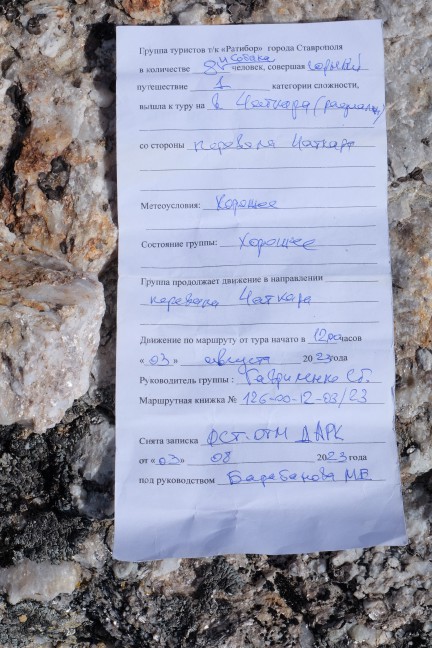 Группа туристов т/к «Ратибор» города Ставрополя
в количестве 8 и собака человек, совершая горный
путешествие 1 категории сложности,
вышла к туру на в. Чаткара (радиально)
со стороны перевала Чаткара
Метеоусловия: Хорошее
Состояние группы: Хорошее
Группа продолжает движение в направлении
перевала Чаткара
Движение по маршруту от тура начато в 12 00 часов
«03» августа 2023 года
Руководитель группы : Гавриленко С.Г.
Маршрутная книжка № 126-00-12-03/23
Снята записка ОТМ ДАРК
от «03» 08 2023 года
под руководством Барабанова МВ